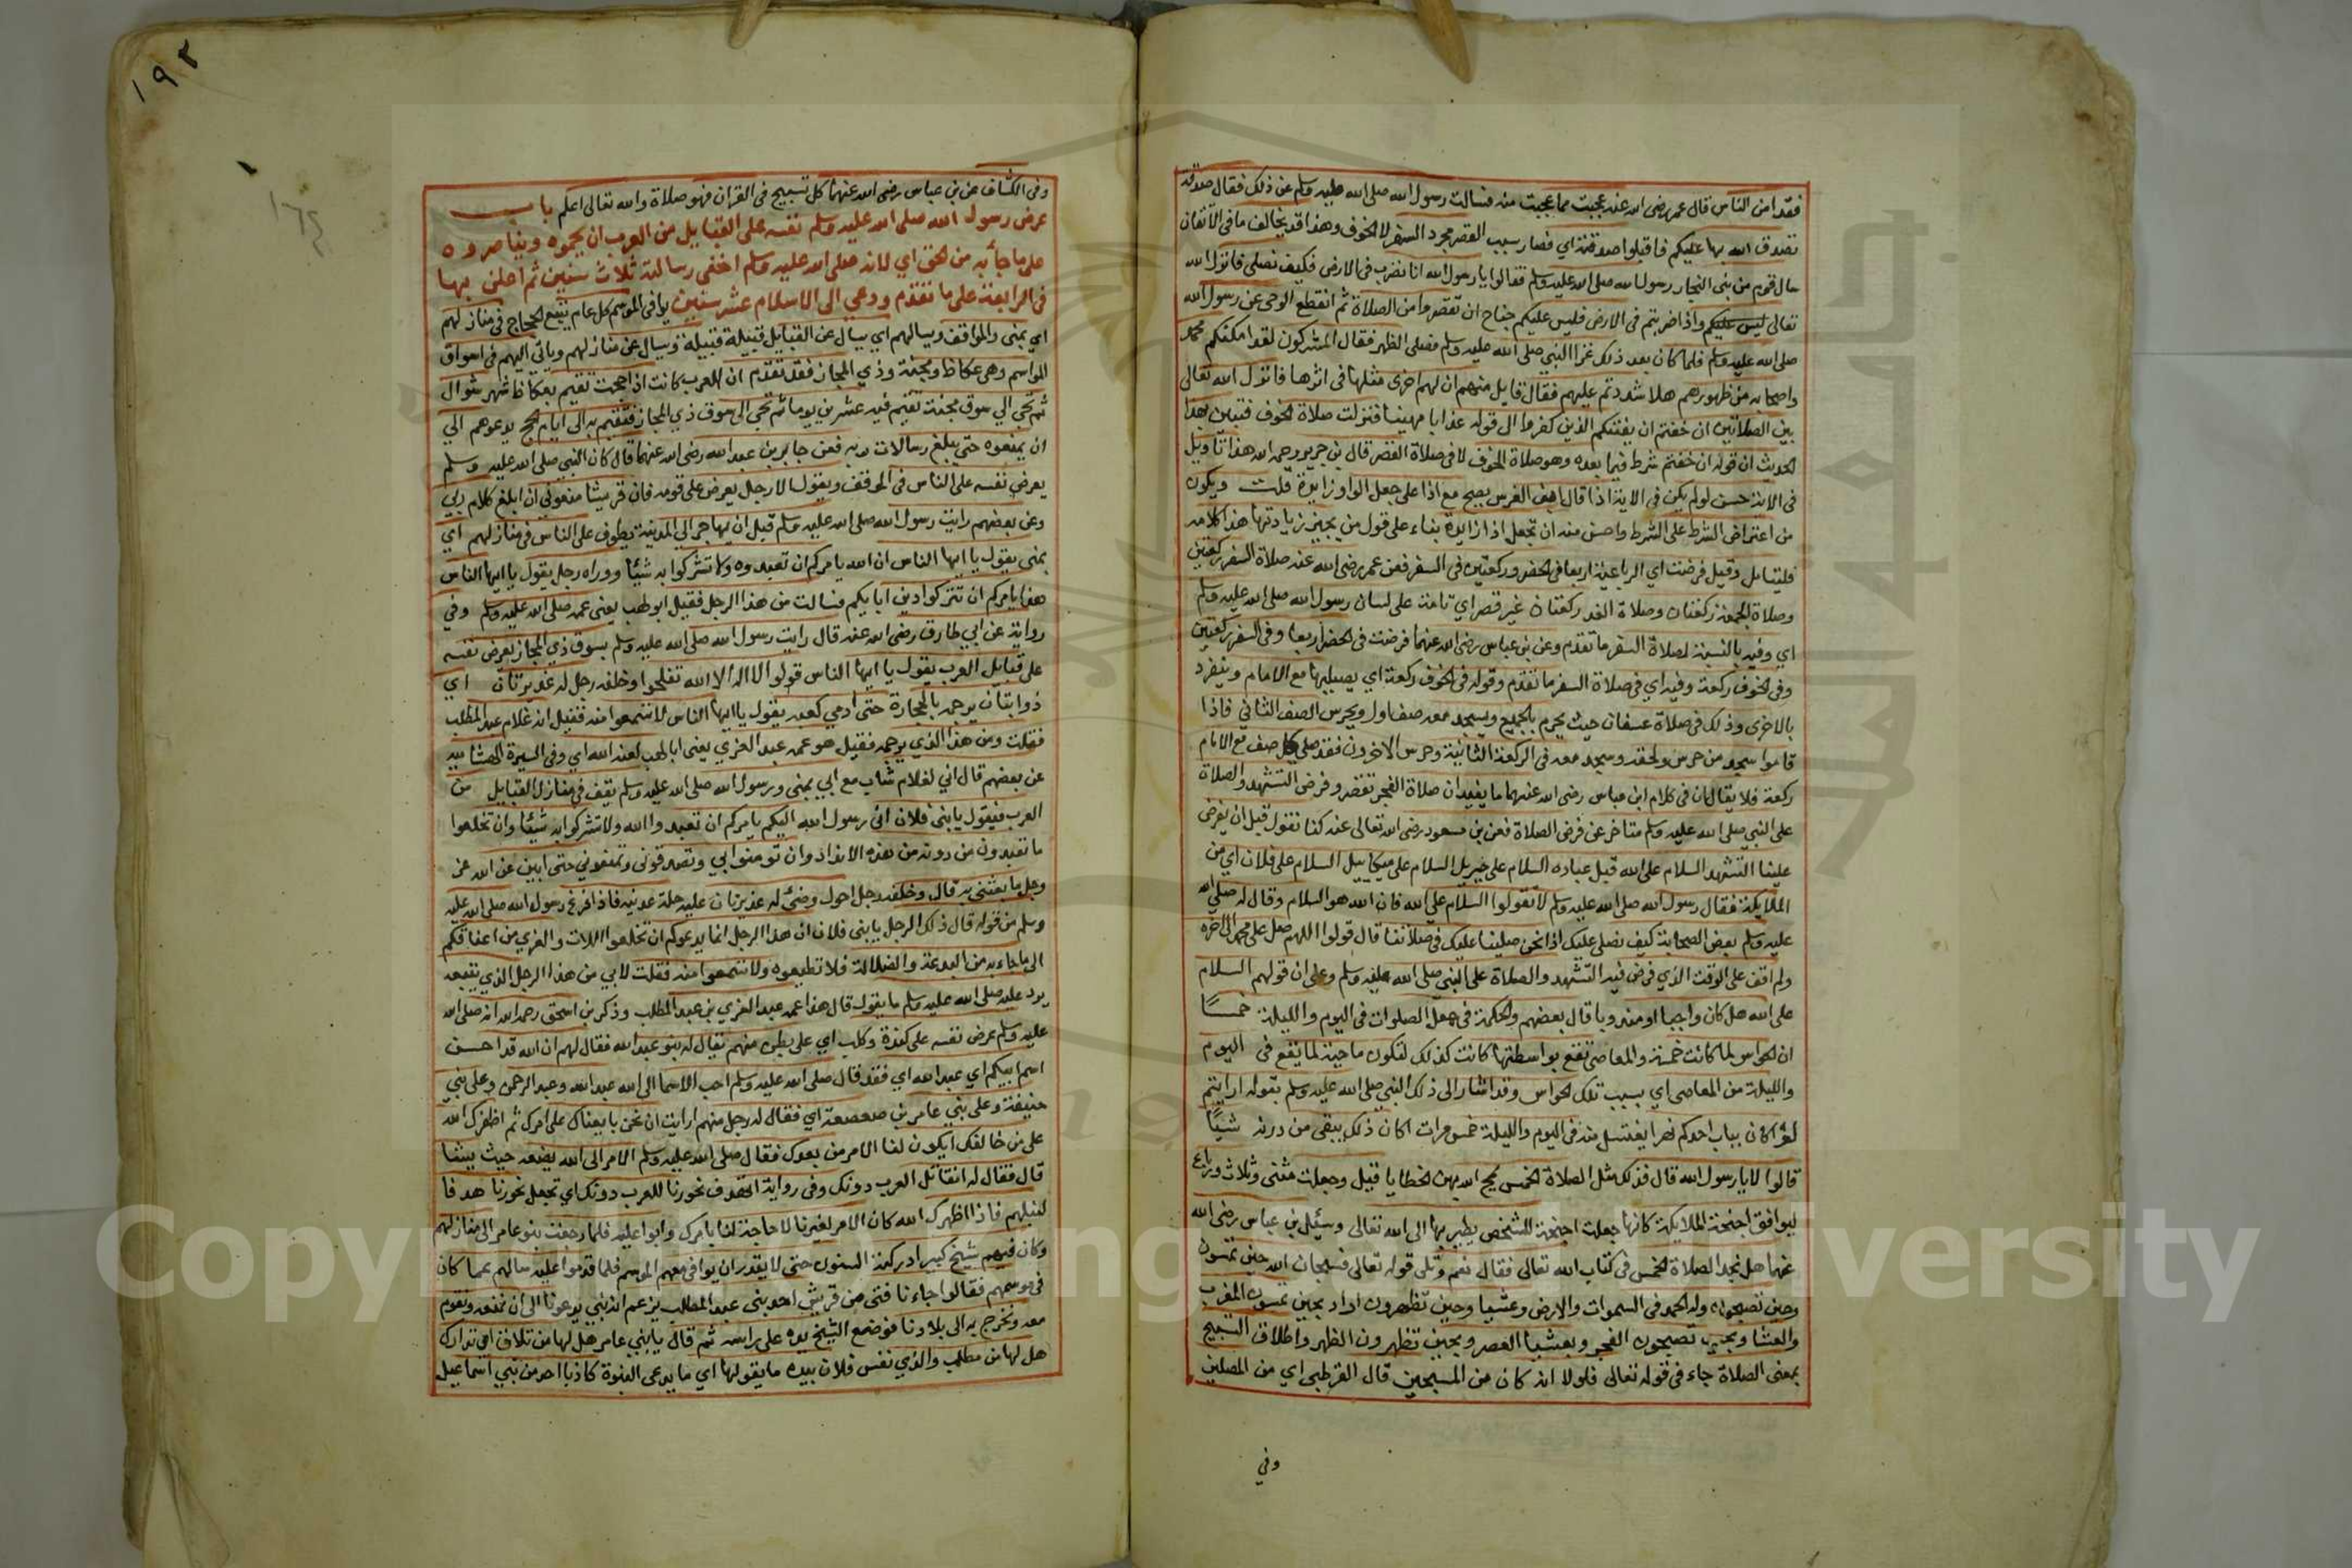 فقد امن الناس قال عمر رضى الله عنه عجبت مما عجبت منه فسالت رسول الله صلى الله عليه وسلم عن ذلك فقال صدقة
تصدق الله بها عليكم فاقبلوا صدقته اي فصار سبب القصر مجرد السفر لا الخوف وهذا قد يخالف ما فى الاتقان
سال قوم من بنى النجار رسول الله صلى الله عليه وسلم فقالوا يا رسول الله انا نضرب فى الارض فكيف نصلى فانزل الله
تعالى ليس عليكم واذا ضربتم فى الارض فليس عليكم جناح ان تقصروا من الصلاة ثم انقطع الوحى عن رسول الله
صلى الله عليه وسلم فلما كان بعد ذلك غزا النبي صلى الله عليه وسلم فصلى الظهر فقال المشركون لقد امكنكم محمد
واصحابه من ظهورهم هلا شددتم عليهم فقال قايل منهم ان لهم اخرى مثلها فى اثرها فانزل الله تعالى
بين الصلاتين ان خفتم ان يفتنكم الذين كفروا الى قوله عذابا مهينا فنزلت صلاة الخوف فتبين بهذا
الحديث ان قوله ان خفتم شرط فيما بعده وهو صلاة الخوف لا فى صلاة القصر قال بن جرير رحمه الله هذا تاويل
فى الاية حسن لو لم يكن فى الاية اذا قال ابن الغرس يصح مع اذا على جعل الواو زايدة قلت ويكون
من اعتراض الشرط على الشرط واحسن منه ان تجعل اذا زايدة بناء على قول من يجيز زيادتها هذا كلامه
فليتامل وقيل فرضت اي الرباعية اربعا فى الحضر وركعتين فى السفر فعن عمر رضى الله عنه صلاة السفر ركعتين
وصلاة الجمعة ركعتان وصلاة العيد ركعتان غير قصر اي تامة على لسان رسول الله صلى الله عليه وسلم
اي وفيه بالنسبة لصلاة السفر ما تقدم وعن بن عباس رضى الله عنهما فرضت فى الحضر اربعا وفى السفر ركعتين
وفى الخوف ركعة وفيه اي فى صلاة السفر ما تقدم وقوله فى الخوف ركعة اي يصليها مع الامام وينفرد
بالاخرى وذلك فى صلاة عسفان حيث يحرم بالجميع ويسجد معه صف اول ويحرس الصف الثاني فاذا
قاموا سجد من حرس ولحقه وسجد معه فى الركعة الثانية وحرس الاخرون فقد صلى كل صف مع الامام
ركعة فلا يقال ان فى كلام ابن عباس رضى الله عنهما ما يفيد ان صلاة الفجر تقصر وفرض التشهد والصلاة
على النبي صلى الله عليه وسلم متاخر عن فرض الصلاة فعن بن مسعود رضى الله تعالى عنه كنا نقول قبل ان يفرض
علينا التشهد السلام على الله قبل عباده السلام على جبريل السلام على ميكاييل السلام على فلان اي من
الملايكة فقال رسول الله صلى الله عليه وسلم لا تقولوا السلام على الله فان الله هو السلام وقال له صلى الله
عليه وسلم بعض الصحابة كيف نصلى عليك اذا نحن صلينا عليك فى صلاتنا قال قولوا اللهم صل على محمد الى اخره
ولم اقف على الوقت الذي فرض فيه التشهد والصلاة على النبي صلى الله عليه وسلم وعلى ان قولهم السلام
على الله هل كان واجبا او مندوبا قال بعضهم والحكمة فى جعل الصلوات فى اليوم والليلة خمسًا
ان الحواس لما كانت خمسة والمعاصى تقع بواسطتها كانت كذلك لتكون ماحية لما يقع فى اليوم
والليلة من المعاصى اي بسبب تلك الحواس وقد اشار الى ذلك النبي صلى الله عليه وسلم بقوله ارايتم
لو كان بباب احدكم نهر يغتسل منه فى اليوم والليلة خمس مرات اكان ذلك يبقى من درنه شيًا
قالوا لا يا رسول الله قال فذلك مثل الصلاة الخمس يمح الله بهن الخطايا قيل وجعلت مثنى وثلاث ورباع
ليوافق اجنحة الملايكة كانها جعلت اجنحة للشخص يطير بها الى الله تعالى وسئل بن عباس رضى الله
عنهما هل تجد الصلاة الخمس فى كتاب الله تعالى فقال نعم وتلى قوله تعالى فسبحان الله حين تمسون
وحين تصبحون وله الحمد فى السموات والارض وعشيا وحين تظهرون اراد بحين تمسون المغرب
والعشا وبحين تصبحون الفجر وبعشيا العصر وبحين تظهرون الظهر واطلاق التسبيح
بمعنى الصلاة جاء فى قوله تعالى فلولا انه كان من المسبحين قال القرطبى اي من المصلين
وفي
١٩٢
١٦٤
وفى الكشاف عن بن عباس رضى الله عنهما كل تسبيح فى القران فهو صلاة والله تعالى اعلم باب
عرض رسول الله صلى الله عليه وسلم نفسه على القبايل من العرب ان يحموه ويناصروه
على ما جأ به من الحق اي لانه صلى الله عليه وسلم اخفى رسالته ثلاث سنين ثم اعلن بها
فى الرابعة على ما تقدم ودعي الى الاسلام عشر سنين يوافى الموسم كل عام يتبع الحجاج فى منازلهم
اي بمنى والمواقف ويسالهم اي يسال عن القبايل قبيلة قبيلة ويسال عن منازلهم وياتي اليهم فى اسواق
المواسم وهى عكاظ ومجنة وذي المجاز فقد تقدم ان العرب كانت اذا حجت تقيم بعكاظ شهر شوال
ثم تجى الى سوق مجنة تقيم فيه عشرين يوما ثم تجى الى سوق ذي المجاز فتقيم به الى ايام الحج يدعوهم الى
ان يمنعوه حتى يبلغ رسالات ربه فعن جابر بن عبد الله رضى الله عنهما قال كان النبي صلى الله عليه وسلم
يعرض نفسه على الناس فى الموقف ويقول الا رجل يعرض على قومه فان قريشا منعونى ان ابلغ كلام ربي
وعن بعضهم رايت رسول الله صلى الله عليه وسلم قبل ان يهاجر الى المدينة يطوف على الناس فى منازلهم اي
بمنى يقول يا ايها الناس ان الله يامركم ان تعبدوه ولا تشركوا به شيئا ووراه رجل يقول يا ايها الناس
هذا يامركم ان تتركوا دين ابايكم فسالت من هذا الرجل فقيل ابو لهب يعنى عمه صلى الله عليه وسلم وفي
رواية عن ابي طارق رضى الله عنه قال رايت رسول الله صلى الله عليه وسلم بسوق ذي المجاز يعرض نفسه
على قبايل العرب يقول يا ايها الناس قولوا لا اله الا الله تفلحوا وخلفه رجل له غديرتان اي
ذوابتان يرجمه بالحجارة حتى ادمى كعبه يقول يا ايها الناس لا تسمعوا منه فقيل انه غلام عبد المطلب
فقلت ومن هذا الذي يرجمه فقيل هو عمه عبد العزى يعنى ابا لهب لعنه الله اي وفى السيرة الهشامية
عن بعضهم قال اني لغلام شاب مع ابي بمنى ورسول الله صلى الله عليه وسلم يقف فى منازل القبايل من
العرب فيقول يا بنى فلان انى رسول الله اليكم يامركم ان تعبدوا الله ولا تشركوا به شيئا وان تخلعوا
ما تعبدون من دونه من هذه الانداد وان تومنوا بي وتصدقونى وتمنعونى حتى ابين عن الله عز
وجل ما بعثنى به قال وخلفه رجل احول وضئ له غديرتان عليه حلة عدنيه فاذا فرغ رسول الله صلى الله عليه
وسلم من قوله قال ذلك الرجل يا بنى فلان ان هذا الرجل انما يدعوكم ان تخلعوا اللات والعزي من اعناقكم
الى ما جاء به من البدعة والضلالة فلا تطيعوه ولا تسمعوا منه فقلت لابي من هذا الرجل الذي يتبعه
يرد عليه صلى الله عليه وسلم ما يقول قال هذا عمه عبد العزي بن عبد المطلب وذكر بن اسحق رحمه الله انه صلى الله
عليه وسلم عرض نفسه على كندة وكلب اي على بطن منهم يقال له بنو عبد الله فقال لهم ان الله قد احسن
اسم ابيكم اي عبد الله اي فقد قال صلى الله عليه وسلم احب الاسما الى الله عبد الله وعبد الرحمن وعلى بني
حنيفة وعلى بنى عامر بن صعصعة اي فقال له رجل منهم ارايت ان نحن بايعناك على امرك ثم اظفرك الله
على من خالفك ايكون لنا الامر من بعدك فقال صلى الله عليه وسلم الامر الى الله يضعه حيث يشا
قال فقال له انقاتل العرب دونك وفى رواية انهدف نحورنا للعرب دونك اي تجعل نحورنا هدفا
لنبلهم فاذا اظهرك الله كان الامر لغيرنا لا حاجة لنا بامرك وابوا عليه فلما رجعت بنو عامر الى منازلهم
وكان فيهم شيخ كبير ادركته السنون حتى لا يقدر ان يوافى معهم الموسم فلما قدموا عليه سالهم عما كان
فى موسمهم فقالوا جاءنا فتى من قريش احد بنى عبد المطلب يزعم انه نبي يدعونا الى ان نمنعه ونقوم
معه ونخرج به الى بلادنا فوضع الشيخ يده على راسه ثم قال يا بنى عامر هل لها من تلاف اي تدارك
هل لها من مطلب والذي نفس فلان بيده ما يقولها اي ما يدعى النبوة كاذبا احد من بني اسماعيل
Copyright © King Saud University